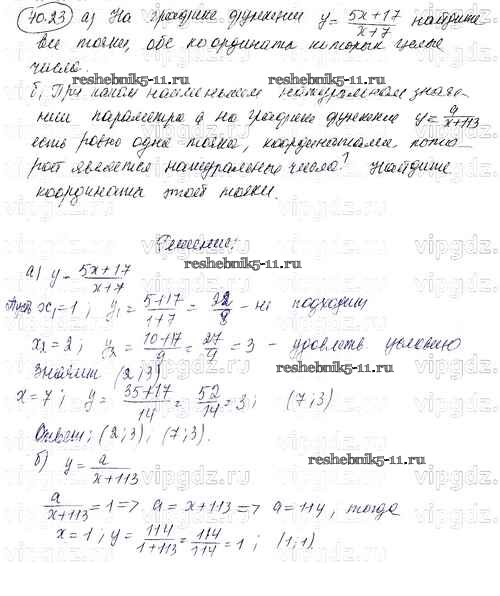 40.23 а) На графике функции y = 5x+17 / x+7 найдите
все точки, обе координаты которых целые
числа.
reshebnik5-11.ru
б) При каком наименьшем натуральном значе-
нии параметра a на графике функции y = a / x+113
есть ровно одна точка, координатами кото-
рой являются натуральные числа? Найдите
координаты этой точки.
Решение:
reshebnik5-11.ru
а) y = 5x+17 / x+7
Пусть x₁=1; y₁ = 5+17 / 1+7 = 22 / 8 - не подходит
x₂=2; y₂ = 10+17 / 9 = 27 / 9 = 3 - удовлетв условию
Значит (2;3)
reshebnik5-11.ru
x=7; y = 35+17 / 14 = 52 / 14 = 3; (7;3)
Ответ: (2;3), (7;3).
б) y = a / x+113
a / x+113 = 1 => a = x+113 => a = 114, тогда
x=1; y = 114 / 1+113 = 114 / 114 = 1; (1;1).
reshebnik5-11.ru
vipgdz.ru